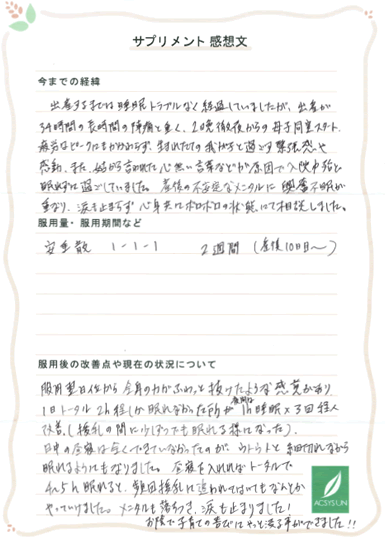 サプリメント 感想文
今までの経緯
出産するまでは睡眠トラブルなく経過していましたが、出産が
34時間の長時間の陣痛と重く、2晩徹夜からの母子同室スタート。
疲労などピークにもかかわらず、生まれたての我が子と過ごす緊張感や
感動、また、心無い言葉などが原因で入院中殆ど
眠れずに過ごしていました。産後の不安定なメンタルに 興奮不眠が
重なり、涙も止まらず 心身共にボロボロの状態にて相談しました。
服用量・服用期間など
安幸散 1-1-1 2週間 (産後10日目〜)
服用後の改善点や現在の状況について
服用翌日位から 全身の力がふわっと抜けたような感覚があり
1日トータル2h程しか眠れなかった所が 夜間は1h睡眠×3回程へ
改善。(授乳の間に少しずつでも眠れる様になった)。
日中の仮寝は全くできていなかったのが、ウトウトと細切れながら
眠れるようにもなりました。仮寝を入れればトータルで
4〜5h眠れると、頻回授乳に追われてはいてもなんとか
やっていけました。メンタルも落ちつき、涙も止まり!
お陰で子育ての喜びにやっと浸る事ができました!!
ACSYSUN